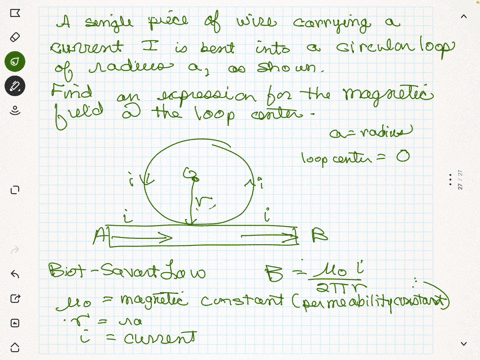 A single piece of wire carrying a
current I is bent into a circular loop
of radius a, as shown.
Find an expression for the magnetic
field @ the loop center.
a = radius
loop center = O
i
r
i
i
i
A
B
Biot-Savart Law
B = μ0 i / 2πr
μ0 = magnetic constant (permeability constant)
r = ra
i = current
27 / 27